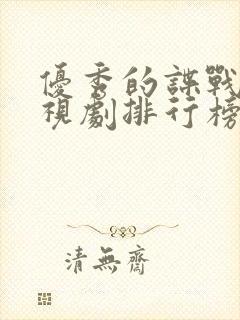 優秀的諜戰
視劇排行榜
清無齋